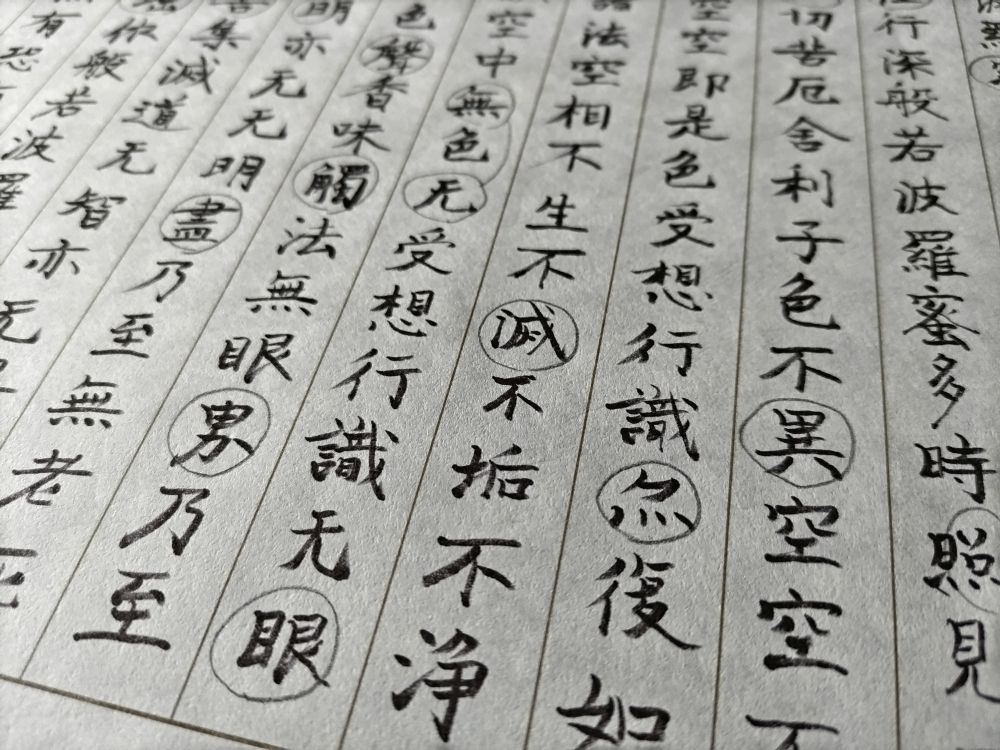 羅
行深般若波羅蜜多時照見
切苦厄舍利子色不異空空不
空空即是色受想行識亦復如
諸法空相不生不滅不垢不净
空中無色无受想行識无眼
色聲香味觸法無眼界乃至
明亦无无明盡乃至無老死
集滅道无智亦无
依般若波羅
有恐